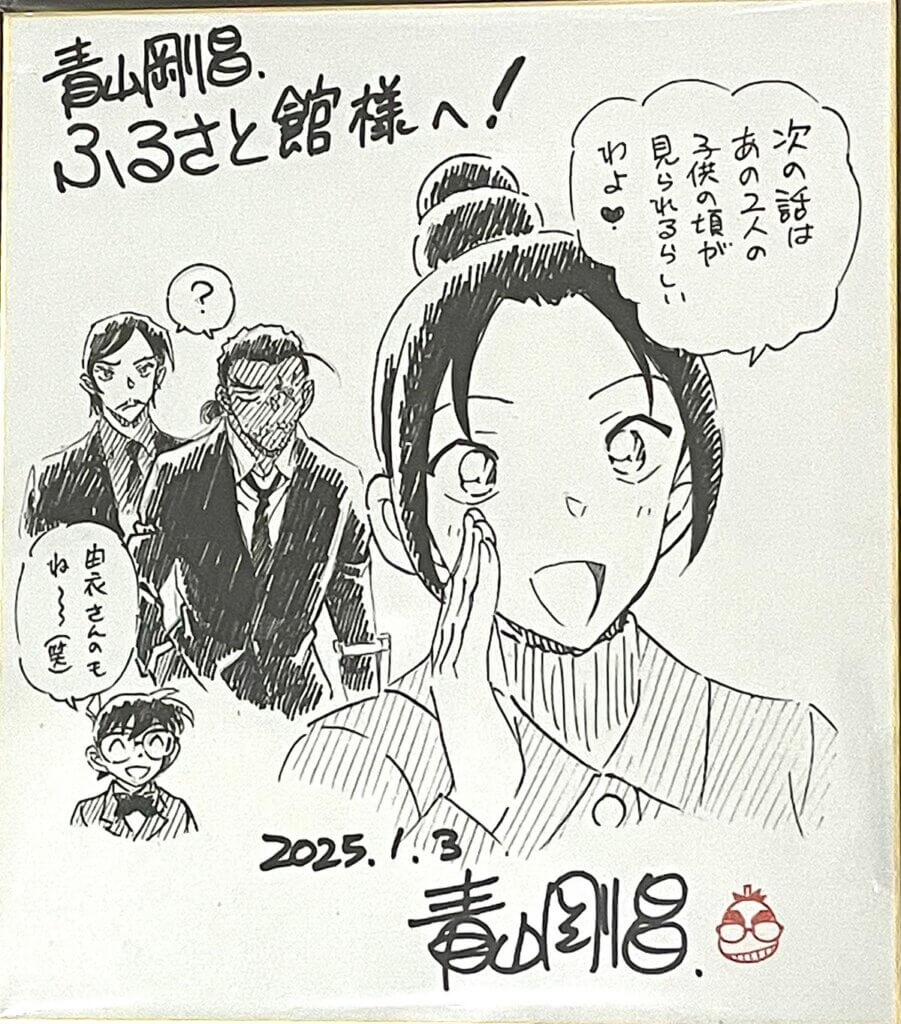 青山剛昌.
ふるさと館様へ!
次の話は
あの2人の
子供の頃が
見られるらしい
わよ♥
?
由衣さんのも
ね〜〜(笑)
2025.1.3
青山剛昌.